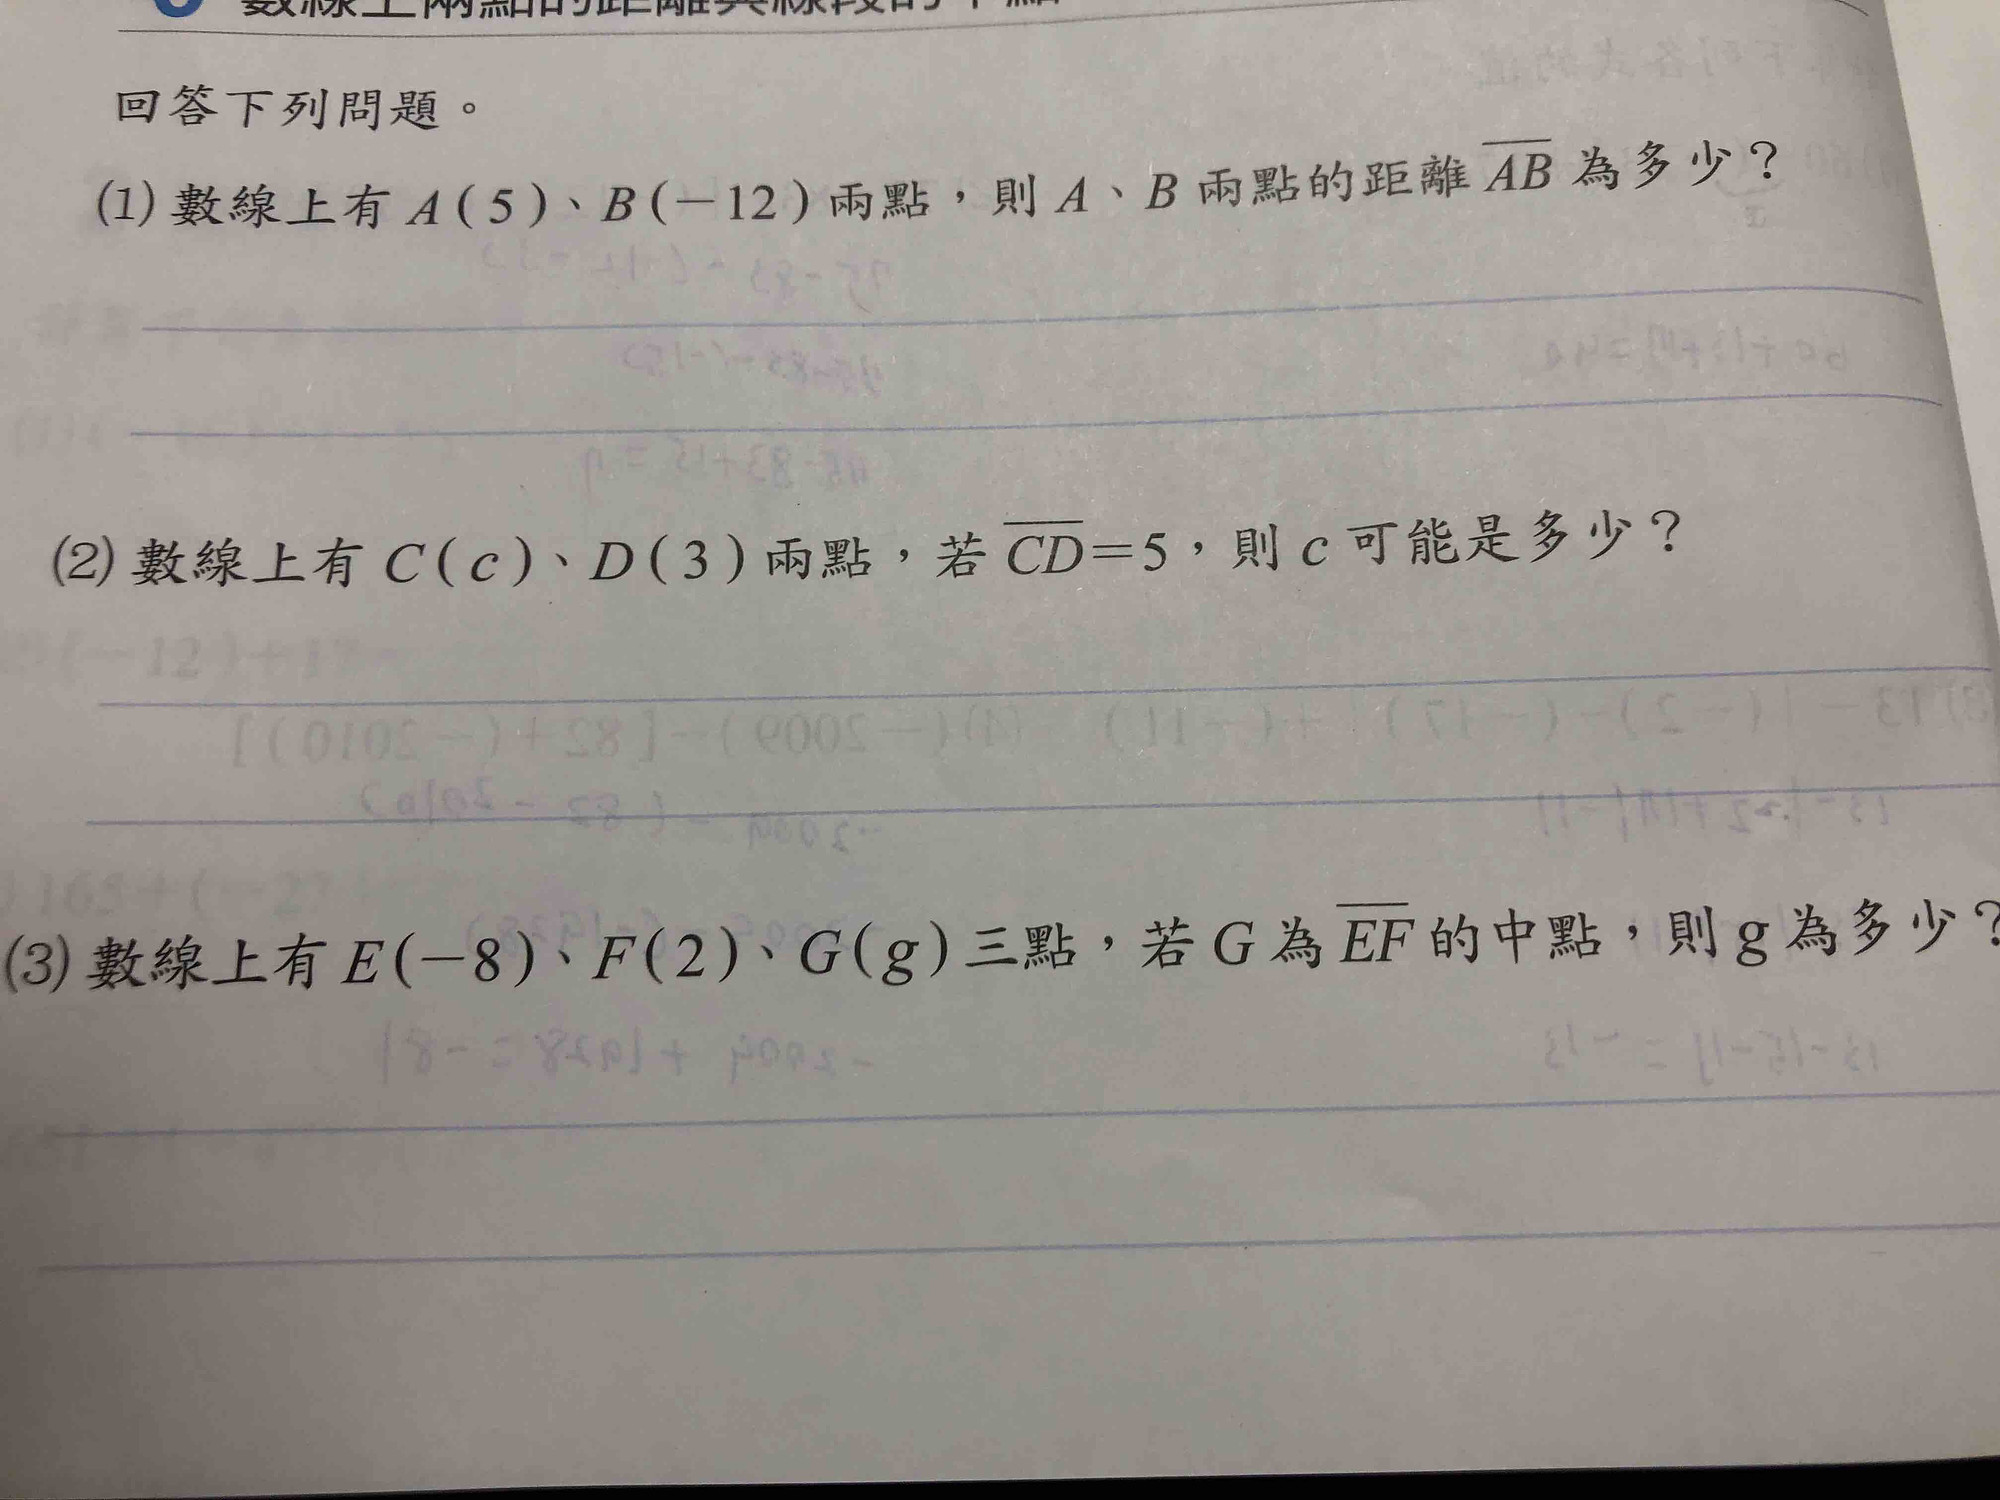 數線上兩點的距離與線段的中點
回答下列問題。
(1) 數線上有 A(5)、B(-12) 兩點,則 A、B 兩點的距離 \overline{AB} 為多少?
(2) 數線上有 C(c)、D(3) 兩點,若 \overline{CD}=5,則 c 可能是多少?
(3) 數線上有 E(-8)、F(2)、G(g) 三點,若 G 為 \overline{EF} 的中點,則 g 為多少?